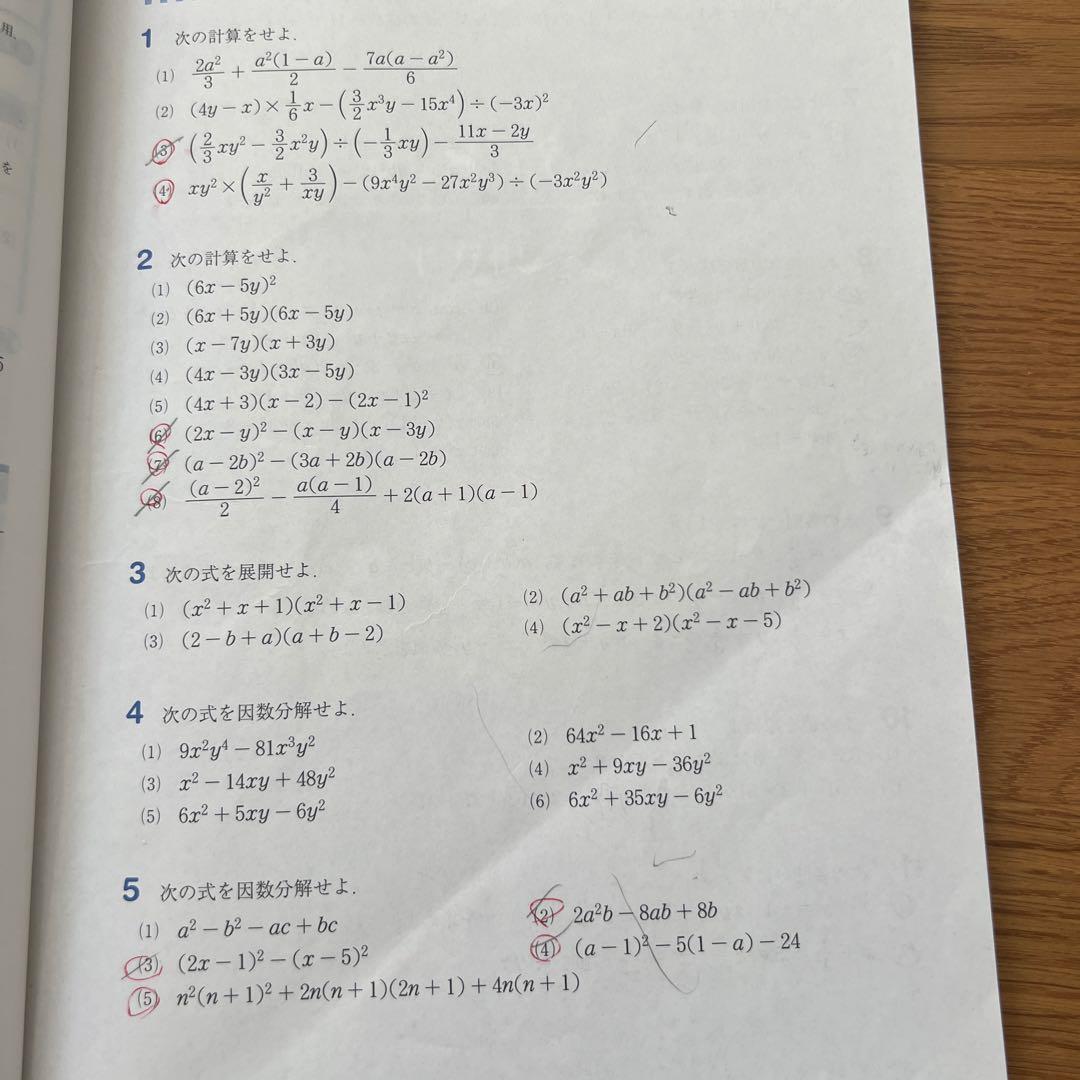 用,
を
1 次の計算をせよ.
(1) \frac{2a^2}{3} + \frac{a^2(1-a)}{2} - \frac{7a(a-a^2)}{6}
(2) (4y-x) × \frac{1}{6}x - (\frac{3}{2}x^3y - 15x^4) ÷ (-3x)^2
(3) (\frac{2}{3}xy^2 - \frac{3}{2}x^2y) ÷ (-\frac{1}{3}xy) - \frac{11x-2y}{3}
(4) xy^2 × (\frac{x}{y^2} + \frac{3}{xy}) - (9x^4y^2 - 27x^2y^3) ÷ (-3x^2y^2)
2 次の計算をせよ.
(1) (6x-5y)^2
(2) (6x+5y)(6x-5y)
(3) (x-7y)(x+3y)
(4) (4x-3y)(3x-5y)
(5) (4x+3)(x-2)-(2x-1)^2
(6) (2x-y)^2-(x-y)(x-3y)
(7) (a-2b)^2-(3a+2b)(a-2b)
(8) \frac{(a-2)^2}{2} - \frac{a(a-1)}{4} + 2(a+1)(a-1)
3 次の式を展開せよ.
(1) (x^2+x+1)(x^2+x-1) (2) (a^2+ab+b^2)(a^2-ab+b^2)
(3) (2-b+a)(a+b-2) (4) (x^2-x+2)(x^2-x-5)
4 次の式を因数分解せよ.
(1) 9x^2y^4-81x^3y^2 (2) 64x^2-16x+1
(3) x^2-14xy+48y^2 (4) x^2+9xy-36y^2
(5) 6x^2+5xy-6y^2 (6) 6x^2+35xy-6y^2
5 次の式を因数分解せよ.
(1) a^2-b^2-ac+bc (2) 2a^2b-8ab+8b
(3) (2x-1)^2-(x-5)^2 (4) (a-1)^2-5(1-a)-24
(5) n^2(n+1)^2+2n(n+1)(2n+1)+4n(n+1)